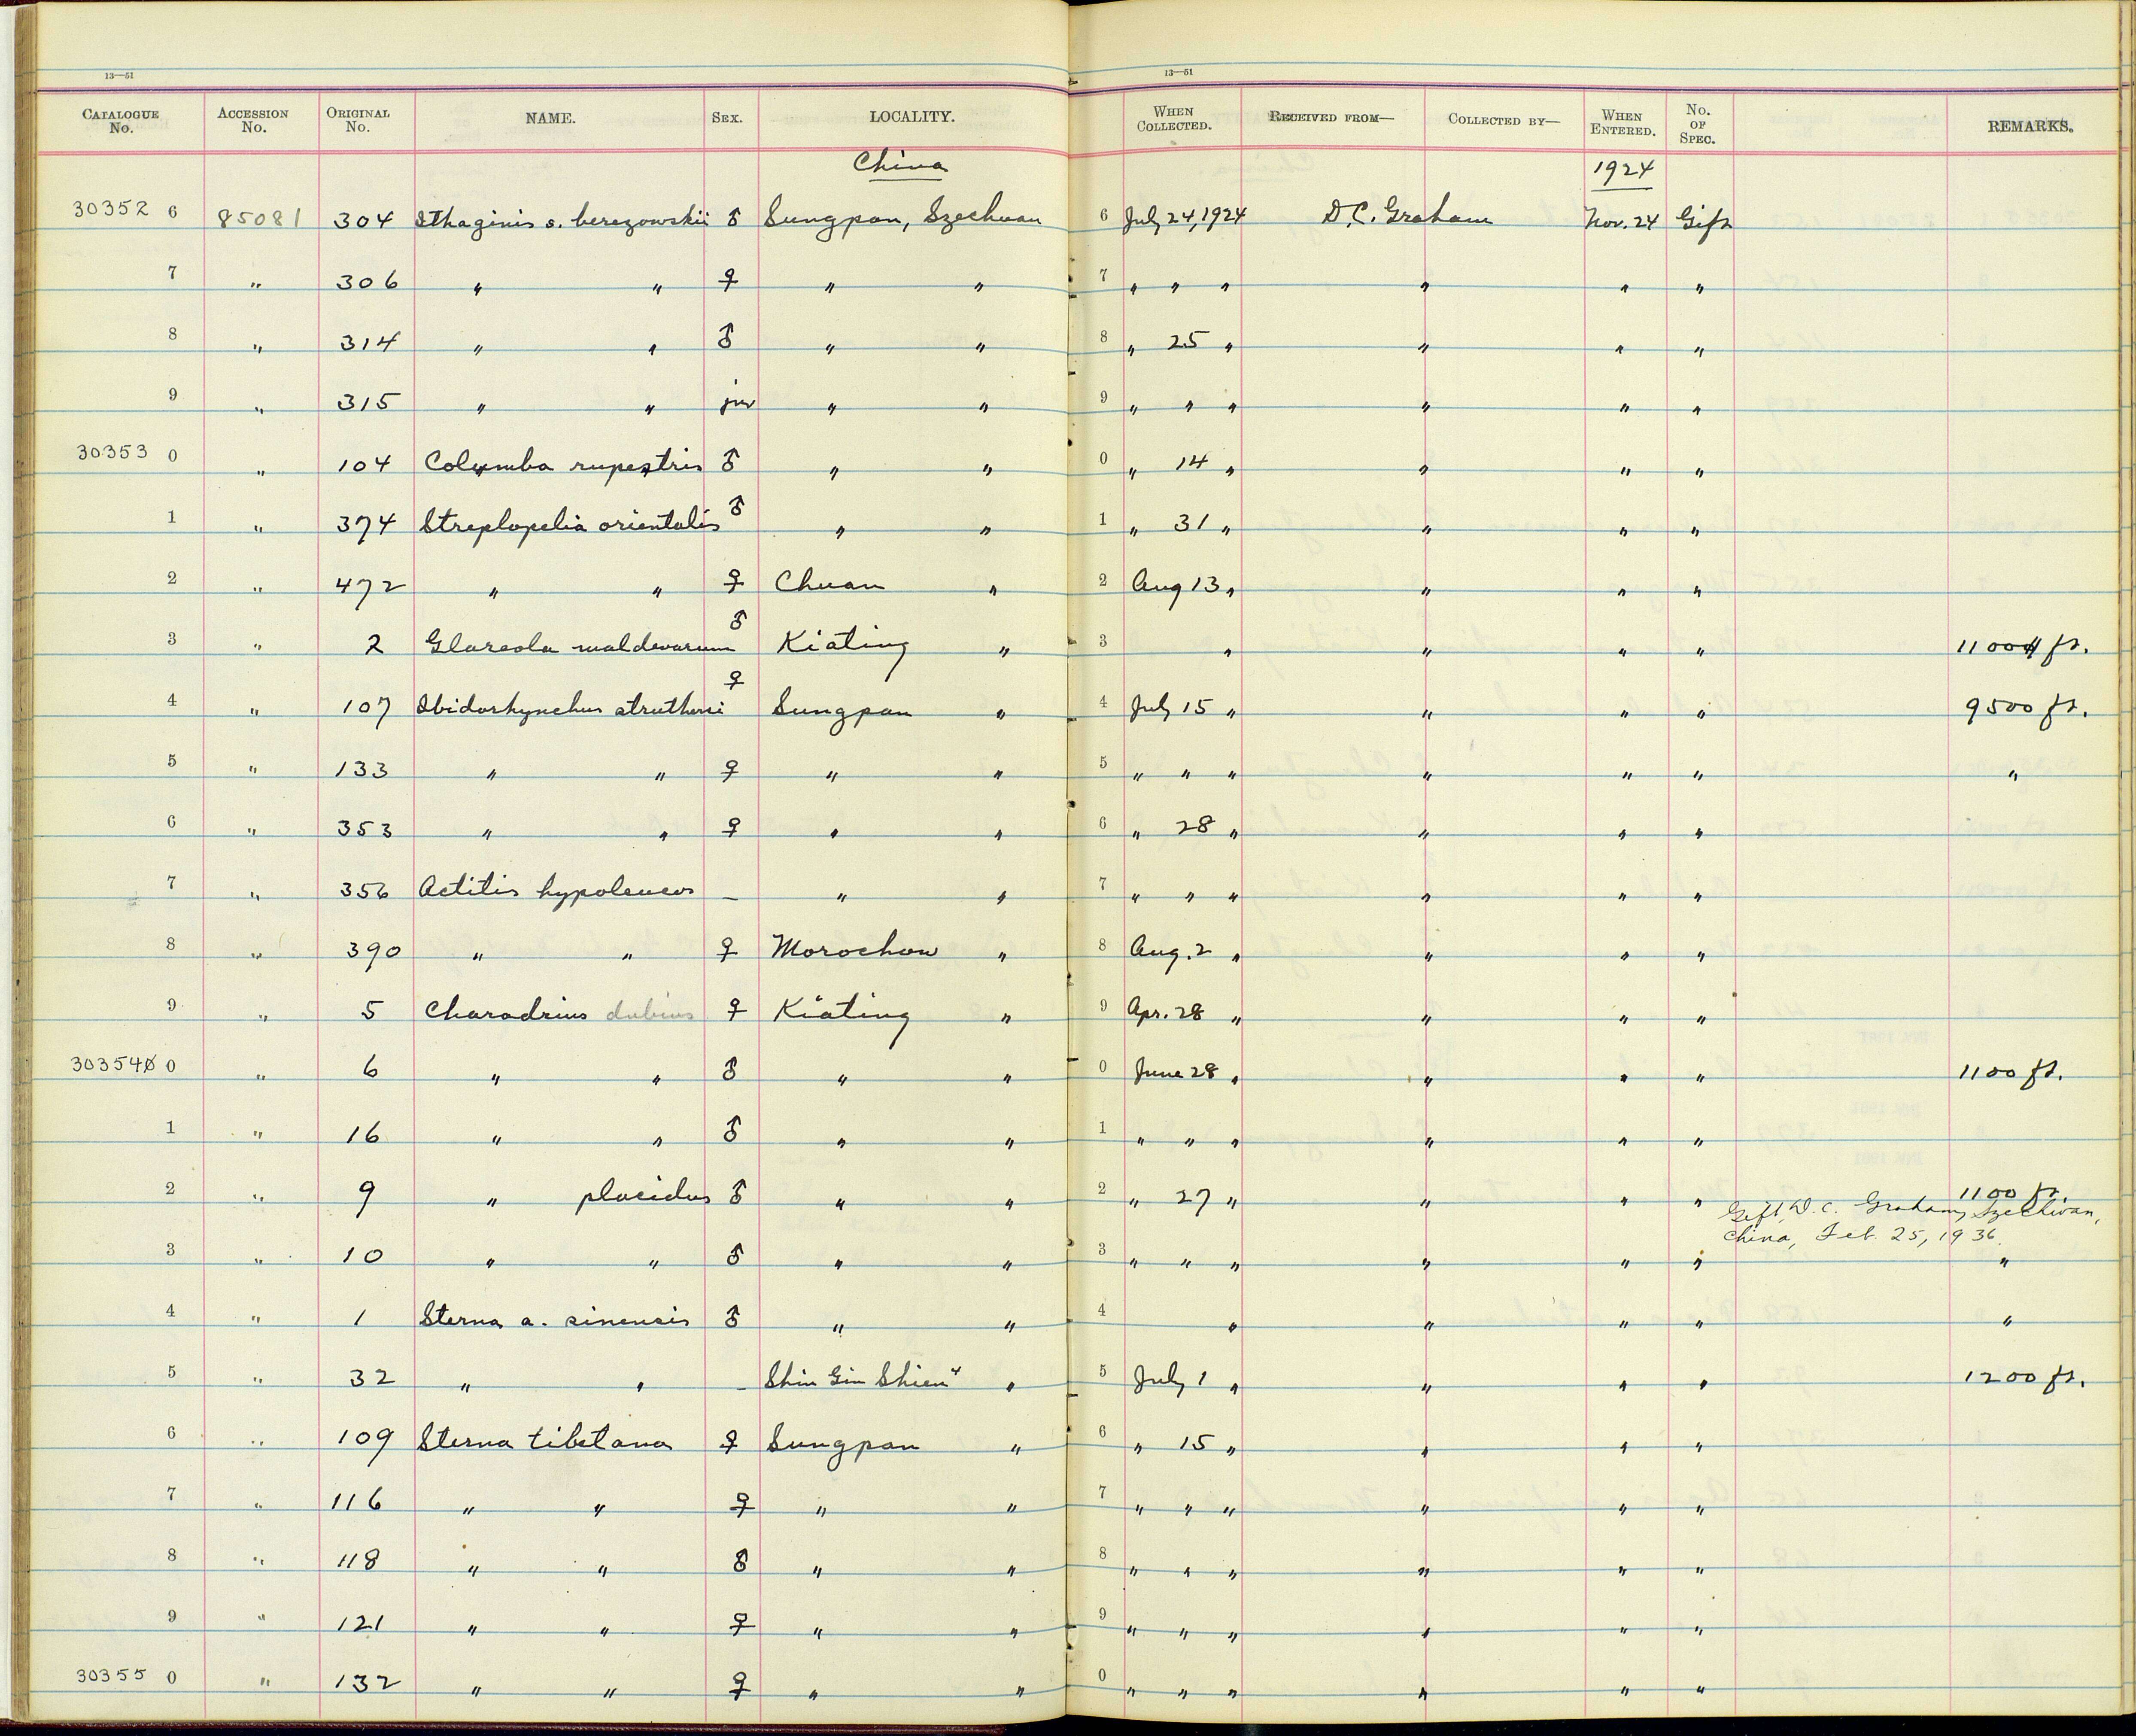 13—51 13—51
CATALOGUE No. ACCESSION No. ORIGINAL No. NAME. SEX. LOCALITY. WHEN COLLECTED. RECEIVED FROM— COLLECTED BY— WHEN ENTERED. No. OF SPEC. REMARKS.
China 1924
30352 6 85081 304 Ithaginis s. berezowskii ♂ Sungpan, Szechuan 6 July 24, 1924 D.C. Graham Nov. 24 Gift
7 " 306 " " ♀ " " 7 " " " " " "
8 " 314 " " ♂ " " 8 " 25 " " " "
9 " 315 " " juv " " 9 " " " " " "
30353 0 " 104 Columba rupestris ♂ " " 0 " 14 " " " "
1 " 374 Streptopelia orientalis ♂ " " 1 " 31 " " " "
2 " 472 " " ♀ Chuan " 2 Aug 13 " " " "
3 " 2 Glareola maldevarum ♂ Kiating " 3 " " " " 1100 ft.
4 " 107 Ibidorhynchus struthersi ♀ Sungpan " 4 July 15 " " " " 9500 ft.
5 " 133 " " ♀ " " 5 " " " " " " "
6 " 353 " " ♀ " " 6 " 28 " " " "
7 " 356 Actitis hypoleucos — " " 7 " " " " " "
8 " 390 " " ♀ Morochow " 8 Aug. 2 " " " "
9 " 5 Charadrius dubius ♀ Kiating " 9 Apr. 28 " " " "
303540 0 " 6 " " ♂ " " 0 June 28 " " " " 1100 ft.
1 " 16 " " ♂ " " 1 " " " " " "
2 " 9 " placidus ♂ " " 2 " 27 " " " " 1100 ft.
Gift, D. C. Graham, Szechwan,
China, Feb. 25, 1936.
3 " 10 " " ♂ " " 3 " " " " " " "
4 " 1 Sterna a. sinensis ♂ " " 4 " " " " "
5 " 32 " " — Shin Gin Shien " 5 July 1 " " " " 1200 ft.
6 " 109 Sterna tibetana ♀ Sungpan " 6 " 15 " " " "
7 " 116 " " ♀ " " 7 " " " " " "
8 " 118 " " ♂ " " 8 " " " " " "
9 " 121 " " ♀ " " 9 " " " " " "
30355 0 " 132 " " ♀ " " 0 " " " " " "